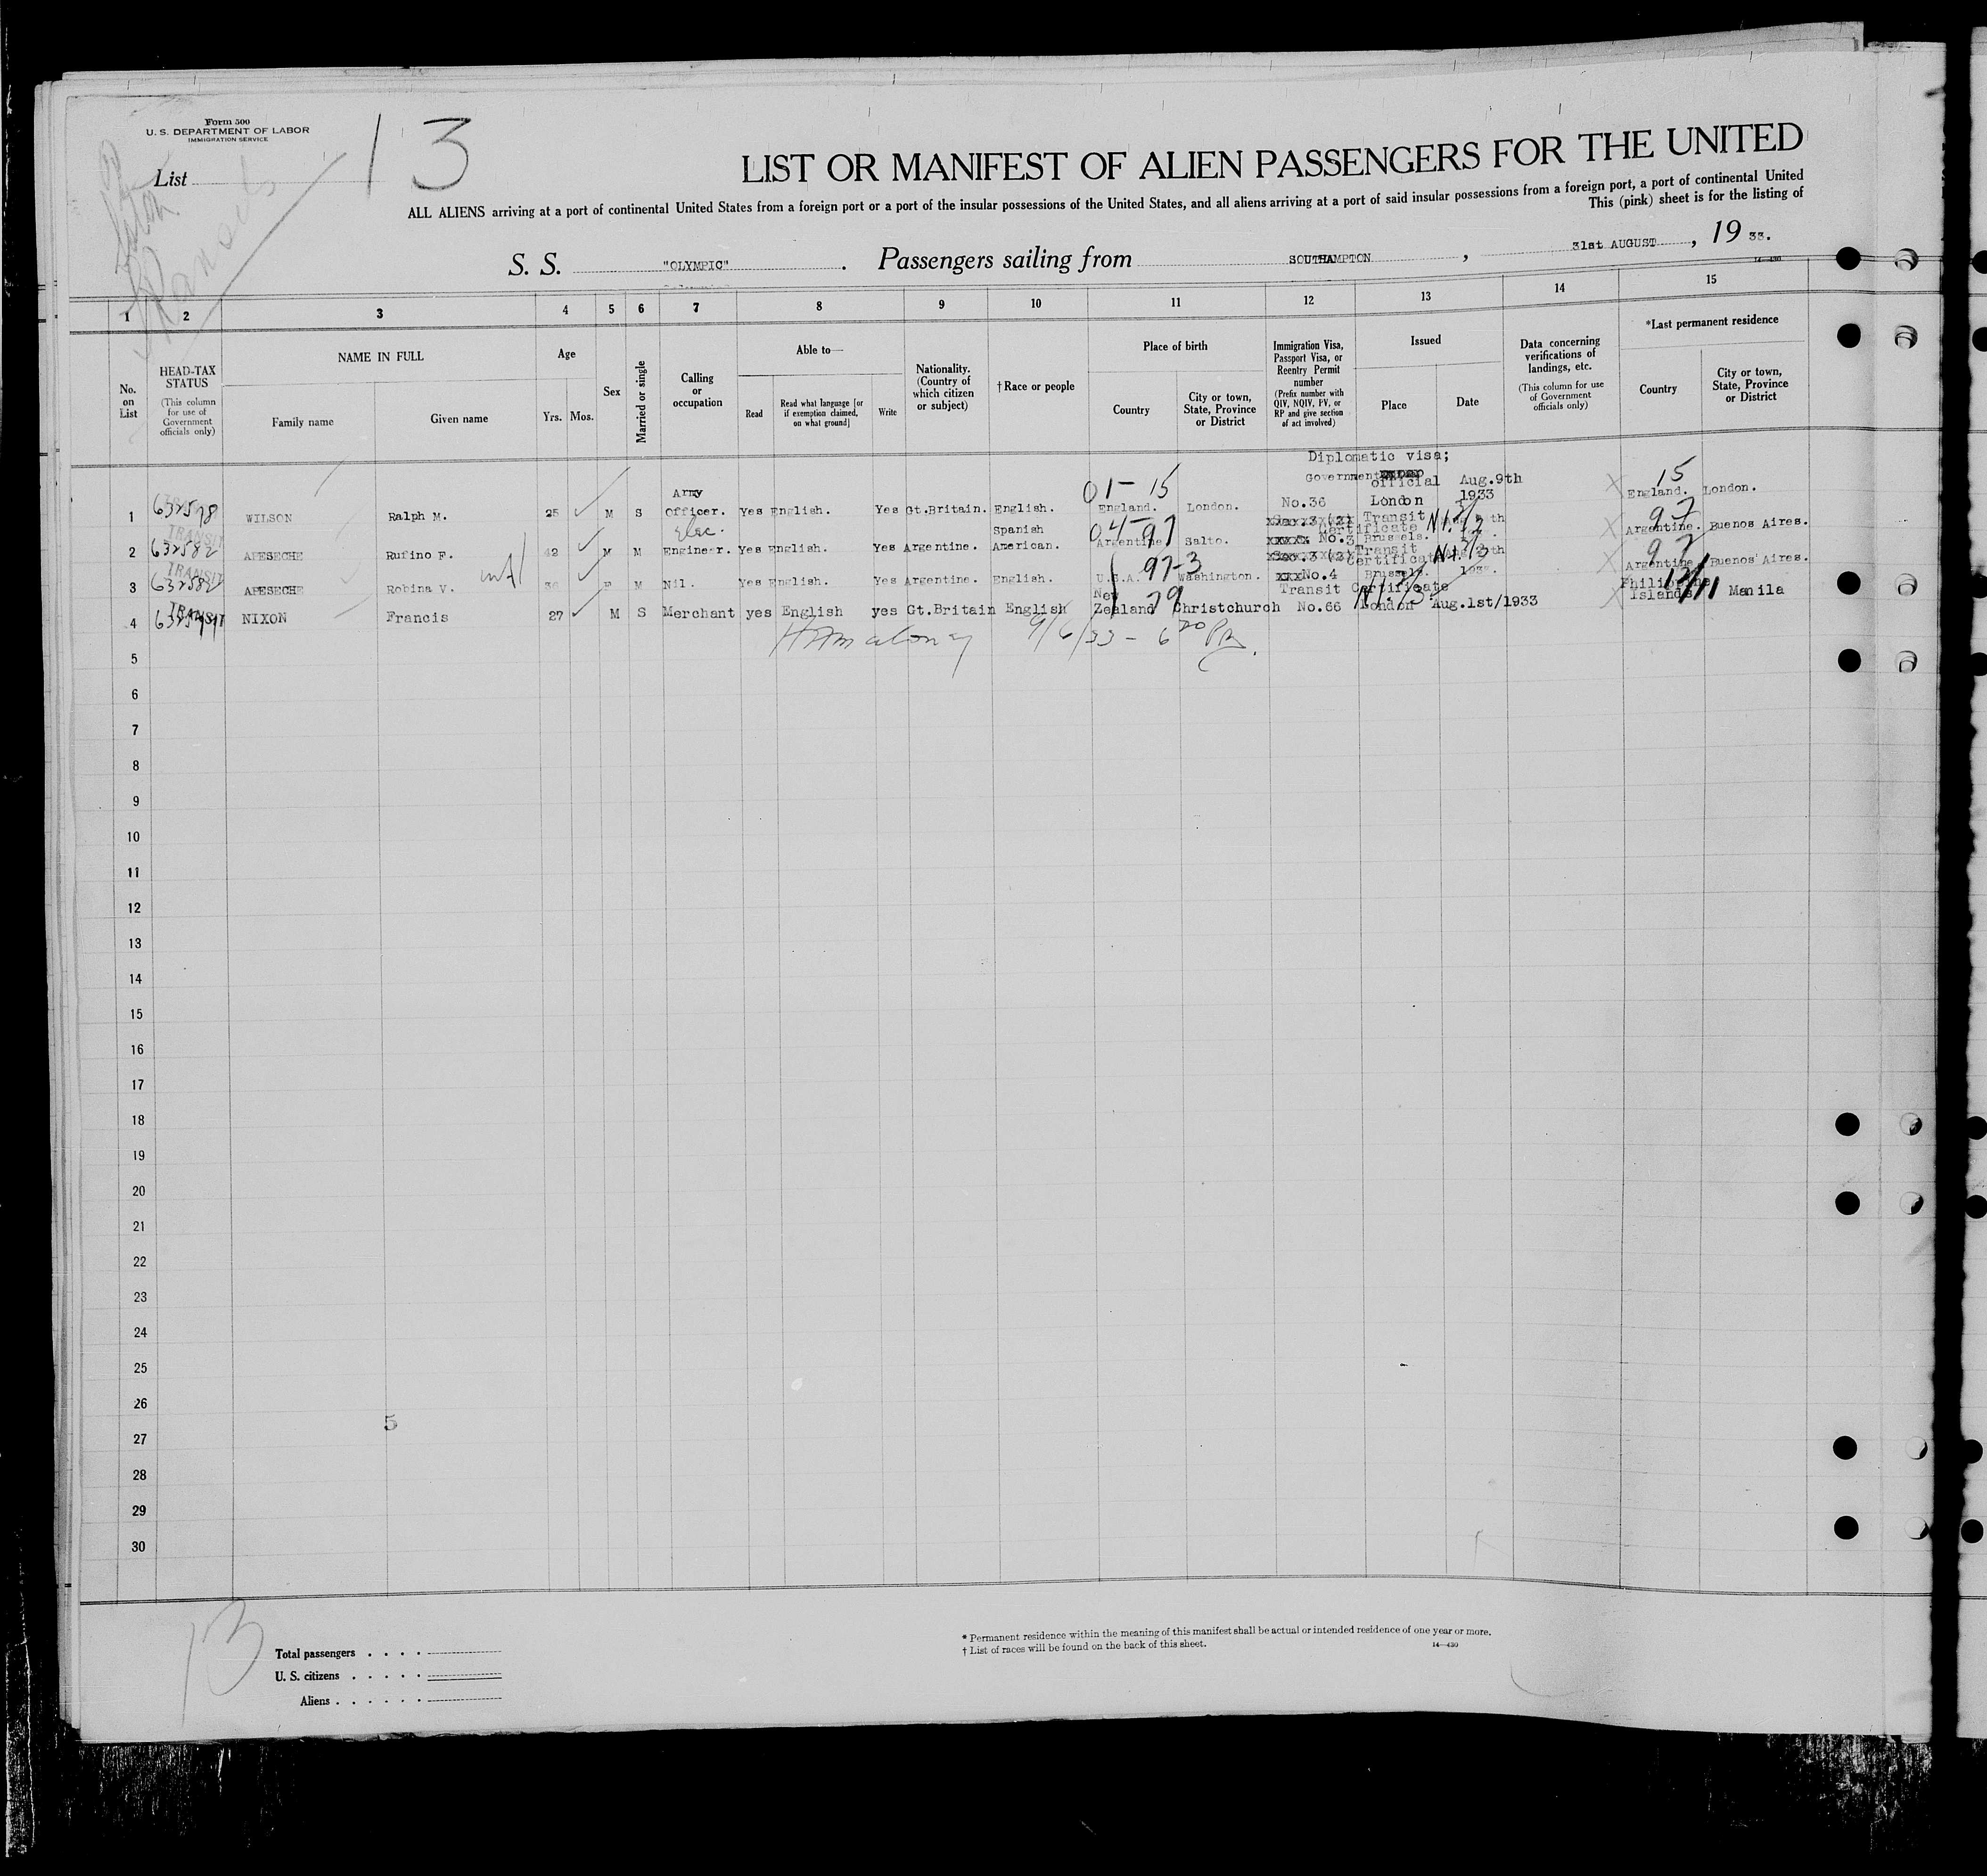 Form 500
U. S. DEPARTMENT OF LABOR
IMMIGRATION SERVICE
List
13
LIST OR MANIFEST OF ALIEN PASSENGERS FOR THE UNITED
ALL ALIENS arriving at a port of continental United States from a foreign port or a port of the insular possessions of the United States, and all aliens arriving at a port of said insular possessions from a foreign port, a port of continental United
This (pink) sheet is for the listing of
S. S. "OLYMPIC". Passengers sailing from SOUTHAMPTON, 31st AUGUST, 19 33.
14—430
1 2 3 4 5 6 7 8 9 10 11 12 13 14 15
No. on List
HEAD-TAX STATUS
(This column for use of Government officials only)
NAME IN FULL
Family name
Given name
Age
Yrs. Mos.
Sex
Married or single
Calling or occupation
Able to—
Read
Read what language [or if exemption claimed, on what ground]
Write
Nationality. (Country of which citizen or subject)
†Race or people
Place of birth
Country
City or town, State, Province or District
Immigration Visa, Passport Visa, or Reentry Permit number
(Prefix number with QIV, NQIV, PV, or RP and give section of act involved)
Issued
Place
Date
Data concerning verifications of landings, etc.
(This column for use of Government officials only)
*Last permanent residence
Country
City or town, State, Province or District
Diplomatic visa;
Government official
1 632578 WILSON Ralph M. 25 M S Army Officer. Yes English. Yes Gt.Britain. English. 01-15 England. London. No.36 London Aug.9th 1933 15 England. London.
2 TRANSIT 632582 APESECHE Rufino F. 42 M M Elec. Engineer. Yes English. Yes Argentine. Spanish American. 04-97 Argentine Salto. Transit Certificate No.3 Brussels. 97 Argentine. Buenos Aires.
3 TRANSIT 632582 APESECHE Robina V. F M Nil. Yes English. Yes Argentine. English. 97-3 U.S.A. Washington. Transit Certificate No.4 Brussels. 97 Argentine Buenos Aires.
4 TRANSIT NIXON Francis 27 M S Merchant yes English yes Gt.Britain English New Zealand 79 Christchurch Transit Certificate No.66 London Aug.1st/1933 Philippine Islands Manila
9/6/33 - 6
5
6
7
8
9
10
11
12
13
14
15
16
17
18
19
20
21
22
23
24
25
26
5
27
28
29
30
13
Total passengers
U. S. citizens
Aliens
* Permanent residence within the meaning of this manifest shall be actual or intended residence of one year or more.
† List of races will be found on the back of this sheet.
14—430